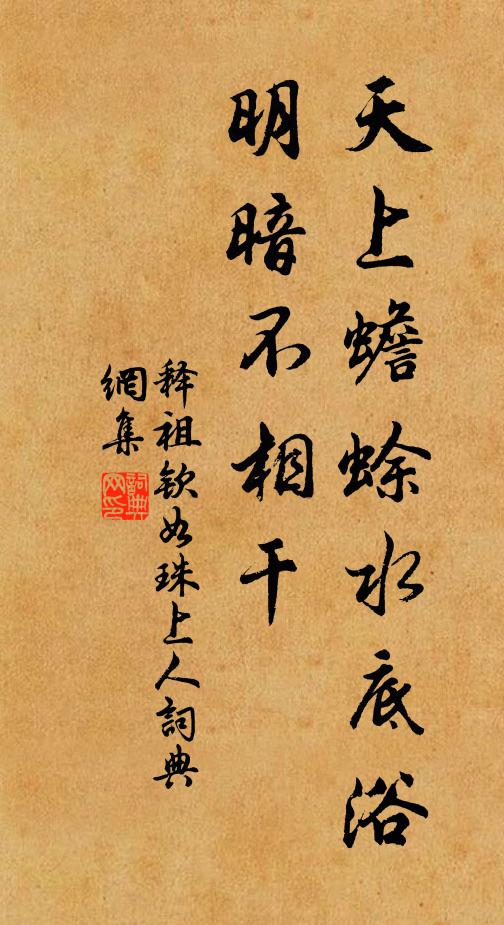 天上蟾蜍水底浴
明暗不相干
释祖欽如珠上人詞典
網集
詞典網印